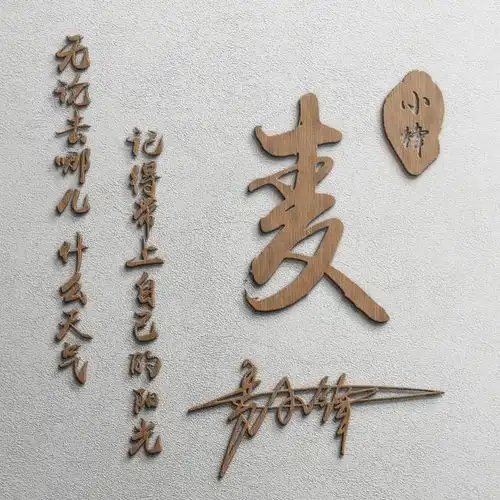 无论去哪儿 什么天气
记得带上自己的阳光
麦
小锋